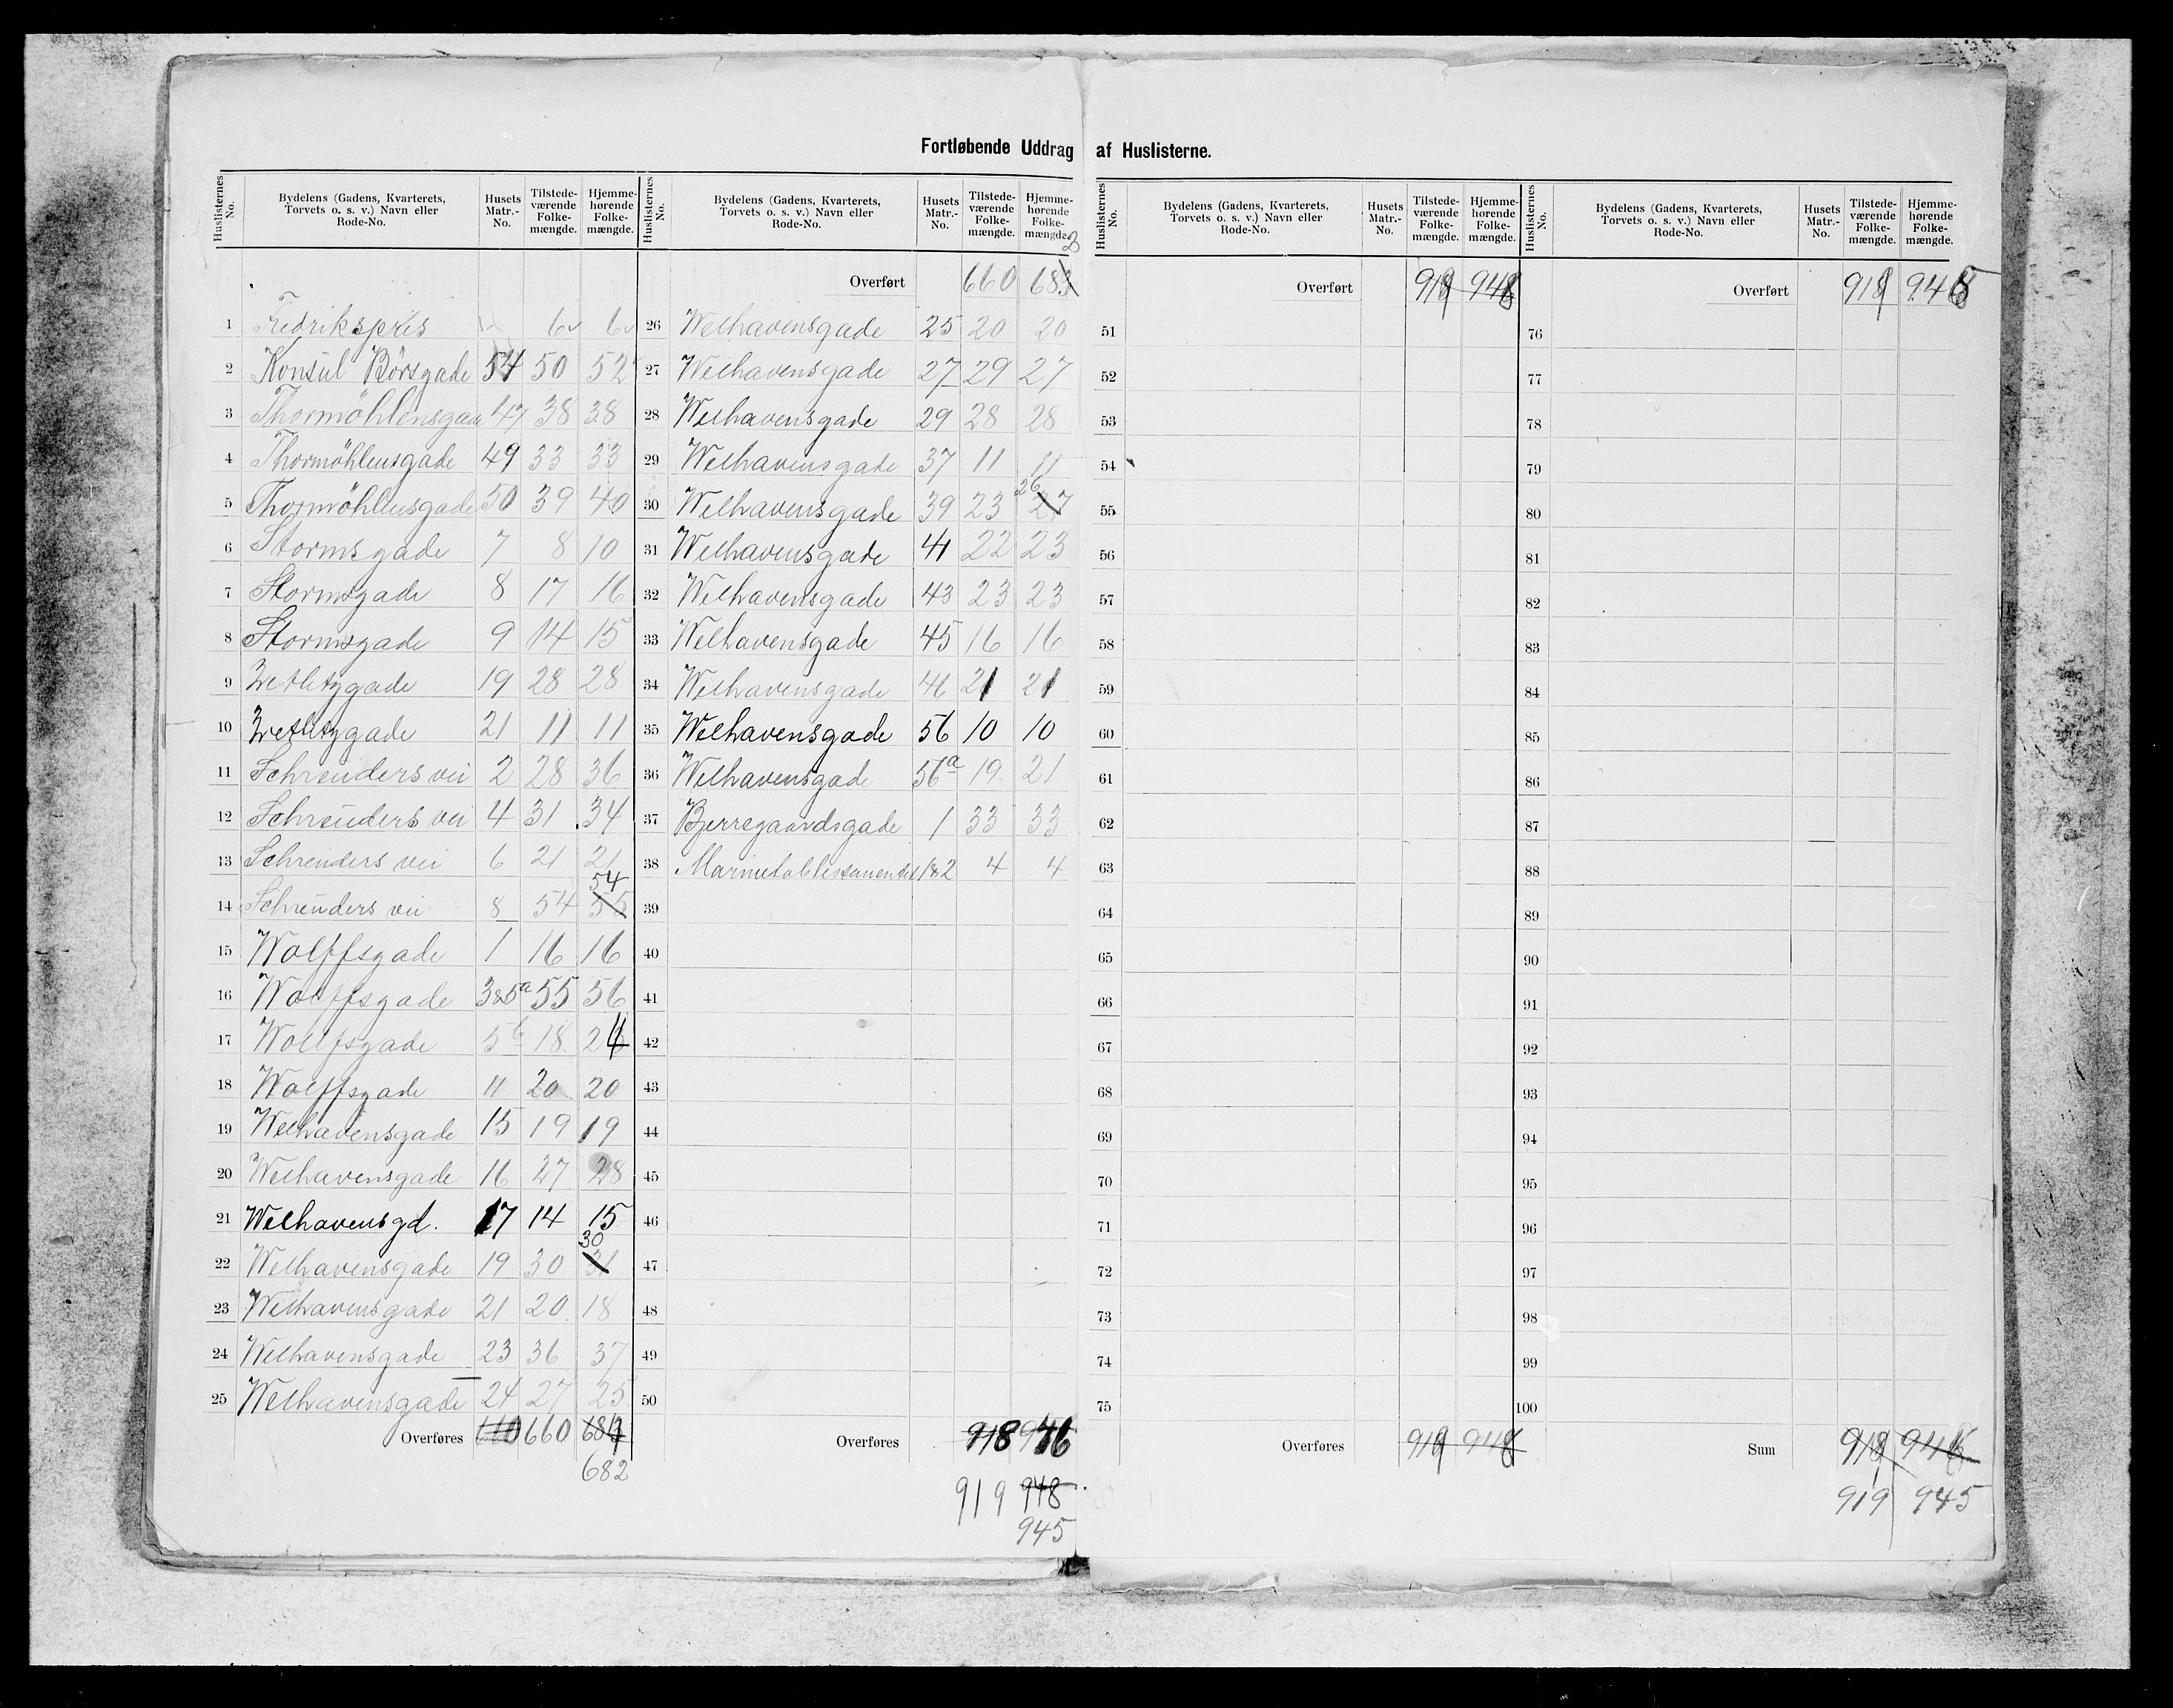 Fortløbende Uddrag af Huslisterne.
Huslisternes No. Bydelens (Gadens, Kvarterets, Torvets o. s. v.) Navn eller Rode-No. Husets Matr.-No. Tilstedeværende Folkemængde. Hjemmehørende Folkemængde.
1 6 6
2 Konsul Börsgade 54 50 52
3 47 38 38
4 Thormöhlensgade 49 33 33
5 Thormöhlensgade 50 39 40
6 Stormsgade 7 8 10
7 Stormsgade 8 17 16
8 Stormsgade 9 14 15
9 19 28 28
10 21 11 11
11 Schreuders vei 2 28 36
12 Schreuders vei 4 31 34
13 Schreuders vei 6 21 21
14 Schreuders vei 8 54 55 54
15 Wolffsgade 1 16 16
16 Wolffsgade 3&5a 55 56
17 Wolffsgade 5b 18
18 Wolffsgade 11 20 20
19 Welhavensgade 15 19 19
20 Welhavensgade 16 27 28
21 Welhavensgd. 17 14 15
22 Welhavensgade 19 30 31 30
23 Welhavensgade 21 20 18
24 Welhavensgade 23 36 37
25 Welhavensgade 24 27 25
Overføres 660
682
Huslisternes No. Bydelens (Gadens, Kvarterets, Torvets o. s. v.) Navn eller Rode-No. Husets Matr.-No. Tilstedeværende Folkemængde. Hjemmehørende Folkemængde.
Overført 660 683 2
26 Welhavensgade 25 20 20
27 Welhavensgade 27 29 27
28 Welhavensgade 29 28 28
29 Welhavensgade 37 11 11
30 Welhavensgade 39 23 27 26
31 Welhavensgade 41 22 23
32 Welhavensgade 43 23 23
33 Welhavensgade 45 16 16
34 Welhavensgade 46 21 21
35 Welhavensgade 56 10 10
36 Welhavensgade 56a 19 21
37 Bjerregaardsgade 1 33 33
38 1&2 4 4
39
40
41
42
43
44
45
46
47
48
49
50
Overføres 918 946
919 948
945
Huslisternes No. Bydelens (Gadens, Kvarterets, Torvets o. s. v.) Navn eller Rode-No. Husets Matr.-No. Tilstedeværende Folkemængde. Hjemmehørende Folkemængde.
Overført
51
52
53
54
55
56
57
58
59
60
61
62
63
64
65
66
67
68
69
70
71
72
73
74
75
Overføres
Huslisternes No. Bydelens (Gadens, Kvarterets, Torvets o. s. v.) Navn eller Rode-No. Husets Matr.-No. Tilstedeværende Folkemængde. Hjemmehørende Folkemængde.
Overført
76
77
78
79
80
81
82
83
84
85
86
87
88
89
90
91
92
93
94
95
96
97
98
99
100
Sum
919 945